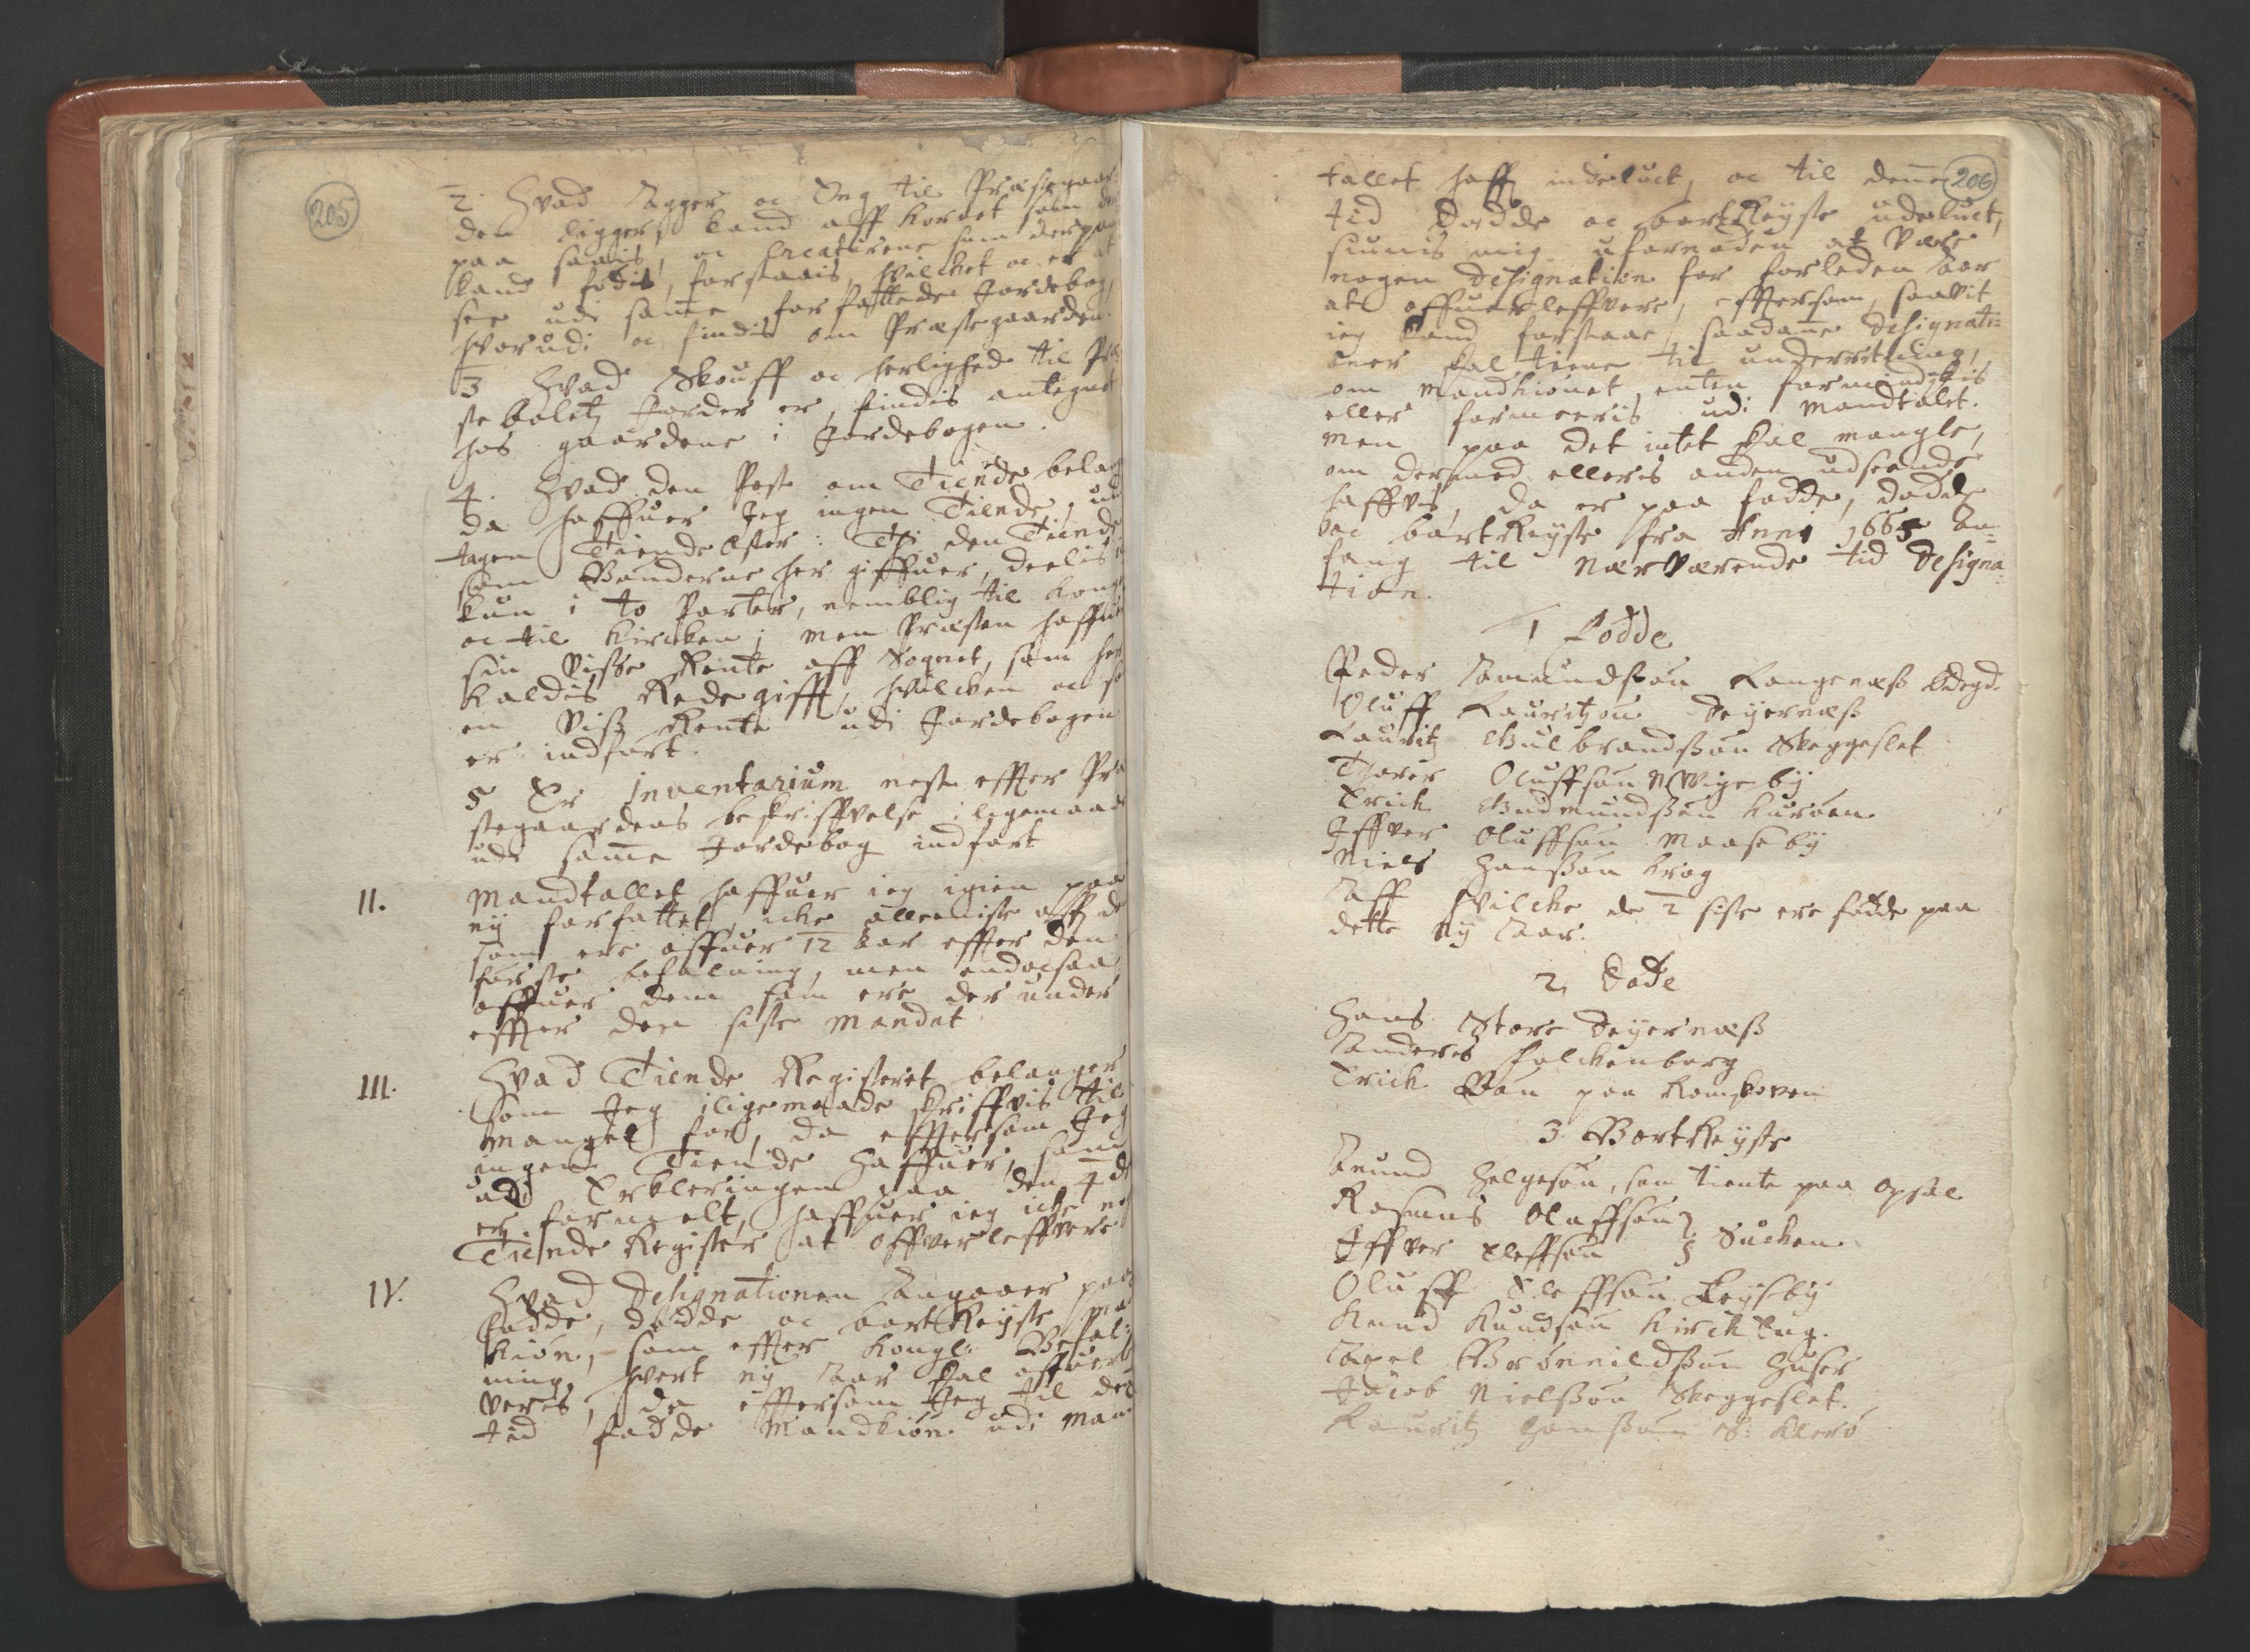 205
2. Hvad Agger oc Eng til Præstegaar
den ligger, kand aff kornet som der
paa saais, oc Creaturene som der paa
kand fødis, forstaais, hvilchet oc er at
see udi samme forfattede Jordebog,
hvorudi oc findis om Præstegaarden.
3 Hvad Skouff oc herlighed til Præ
stebolitz Jorder er, findis antegnet
hos gaardene i Jordebogen.
4. Hvad den Post om Tiende belan
da haffuer Jeg ingen Tiende, ud
tagen Tiende Oster: Thi den Tiende
som Bønderne her giffuer, deelis
kun i to Parter, nemblig til Kong
oc til Kircken; men Præsten haffuer
sin visse Rente aff Sognet, som her
kaldis Rede gifft, hvilcken oc so
en viss Rente udi Jordebogen
er indført.
5 Er Inventarium nest effter Præ
stegaardens beskriffvelse iligemaade
udi samme Jordebog indført
II. Mandtallet haffuer ieg igien paa
ny forfattet, icke alleeniste aff de
som ere offuer 12 Aar effter den
første befalning, men endocsaa
offuer dem som ere der under
effter den siste Mandat
III. Hvad Tiende Registeret belanger
som Jeg iligemaade skriffvis til
mangel for, da efftersom Jeg
ingen Tiende haffuer, som
udi Erkleringen paa den 4de
er formelt, haffuer ieg icke no
Tiende Register at offverleffvere
IV. Hvad Designationen Angaaer paa
fødde, dødde oc bortReyste Ma
kiøn, som effter Kongl: Befal:
ning hvert ny Aar skal offuerl
veris, da efftersom Jeg til den
tid fødde Mandkiøn udi Man
206
tallet haff indeluct, oc til denne
tid Dødde oc bortReyste udeluct,
siunis mig ufornøden at være
nogen Designation for forleden Aar
at offuerleffvere, efftersom, saavit
ieg kand forstaae, saadanne Designati:
oner skal tiene til underretning,
om Mandkiønet enten formindskis
eller formeeris udi Mandtalet.
Men paa det intet skal mangle,
om dermed elleris anden udseende
haffvis, da er paa fødde, dødde
oc bortReyste fra Anni 1665 An=
fang til nærværende tid Designa=
tion.
1 Fødde
Peder Amundsøn Langenæss ødegd.
Oluff Lauritzøn Deyernæss
Lauritz Gulbrandsøn Skeggeslet
Thorer Oluffsøn Wigeby
Erick Gudmundsøn Kurøen
Iffver Oluffsøn Maaseby
Niels Hanssøn Krog
Aff hvilcke de 2 siste ere fødde paa
dette ny Aar.
2, Døde
Hans Store Deyernæss
Anders Falckenborg
Erick Bøn paa Romskoven
3 BortReyste
Amund Helgesøn, som tiente paa Opsal
Rasmus Olaffsøn
Iffver Eleffsøn } Sucken
Oluff Eleffsøn Leysby
Knud Knudsøn Kirckeng.
Axel Brønnildsøn Huser
Jacob Nielssøn Skeggeslet.
Lauritz Hanssøn S: Klerø